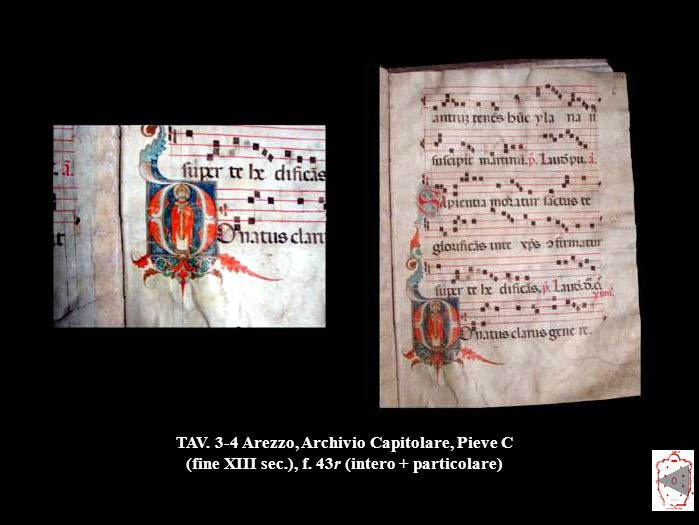 a.
super te he dificãs
Donatus claru
antiuz tenes hũc yla ria n
suscipit martinũ. p. Laud pu. a.
Sapientia moratur factus te
glorificãs inte xp̃s ɔfirmatur
super te he dificãs, p. Laud.
Donatus clarus gene re.
TAV. 3-4 Arezzo, Archivio Capitolare, Pieve C
(fine XIII sec.), f. 43r (intero + particolare)